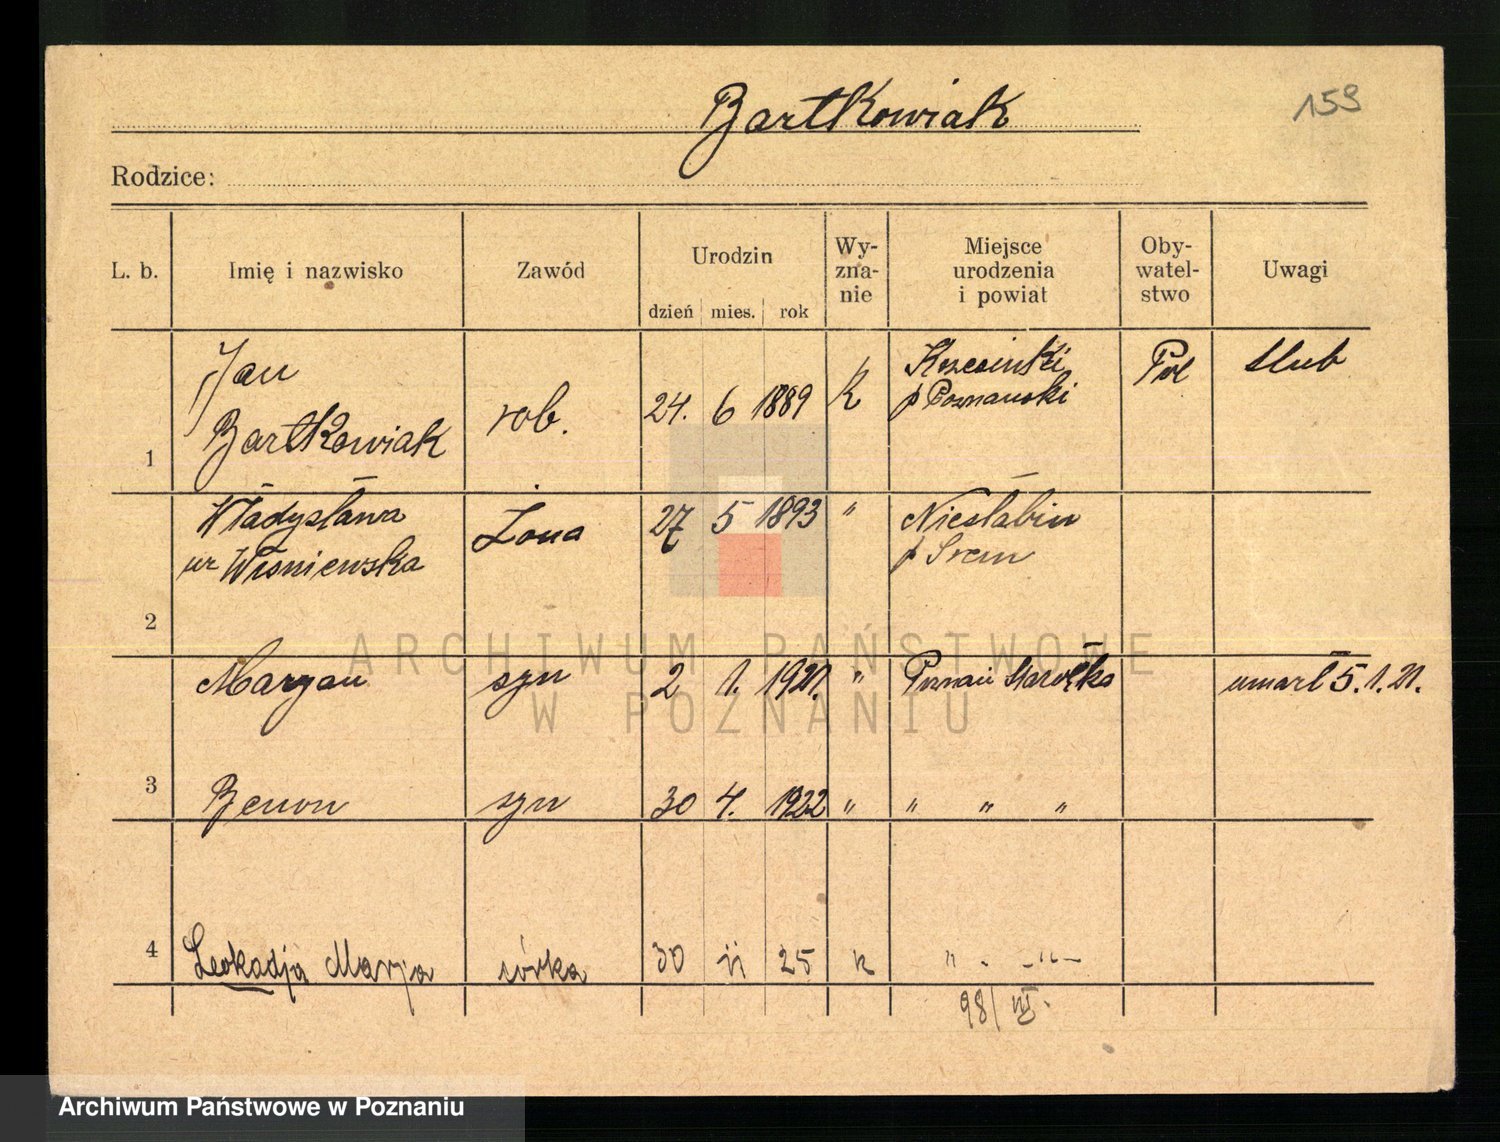 Bartkowiak 159
Rodzice:
L. b. Imię i nazwisko Zawód Urodzin Wy- Miejsce Oby- Uwagi
zna- urodzenia watel-
nie i powiat stwo
dzień mies. rok
Jan Pol ślub
p Poznański
1 Bartkowiak rob. 24. 6 1889 K
Władysława Żona 27 5 1893 " Niesłabin
ur Wiśniewska p Śrem
2
ARCHIWUM PAŃSTWOWE
Maryan syn 2 1. 1921. " Poznań Starołęka umarł 5.1.21.
W POZNANIU
3 Benon syn 30 4. 1922 " " " "
4 Leokadja Marja córka 30 11 25 k " . -"-
98/VI.
Archiwum Państwowe w Poznaniu